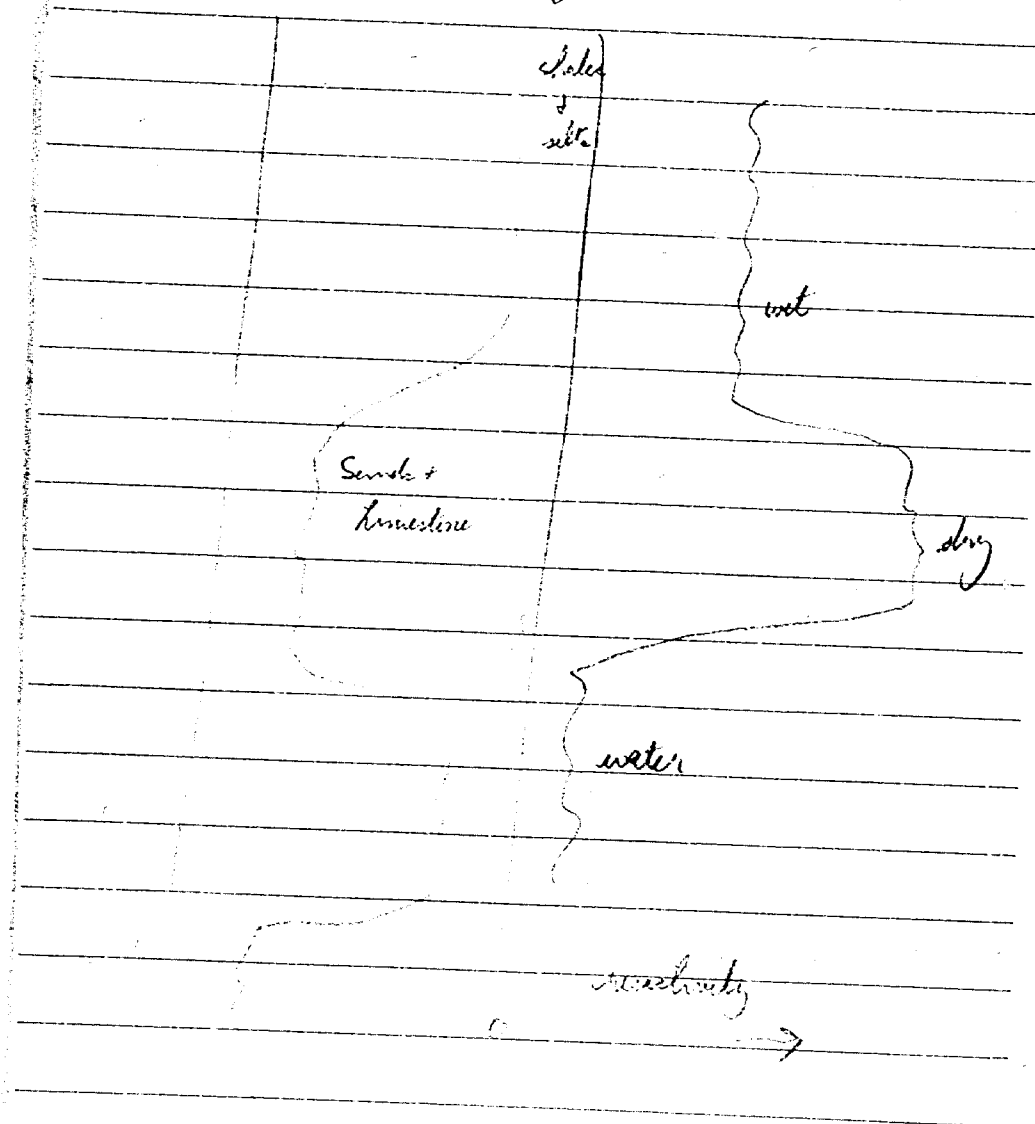 shales
+
silts
wet
Sands +
Limestone
dry
water
resistivity
0